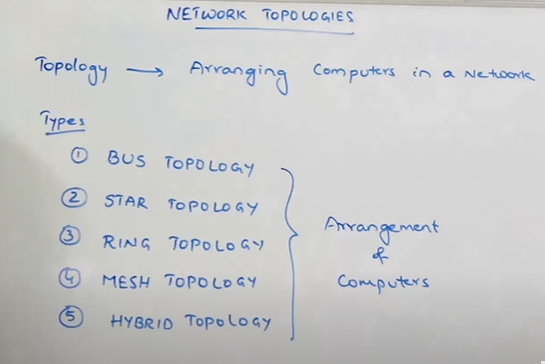 NETWORK TOPOLOGIES
Topology → Arranging Computers in a Network
Types
① BUS TOPOLOGY
② STAR TOPOLOGY
③ RING TOPOLOGY
④ MESH TOPOLOGY
⑤ HYBRID TOPOLOGY
Arrangement
of
Computers